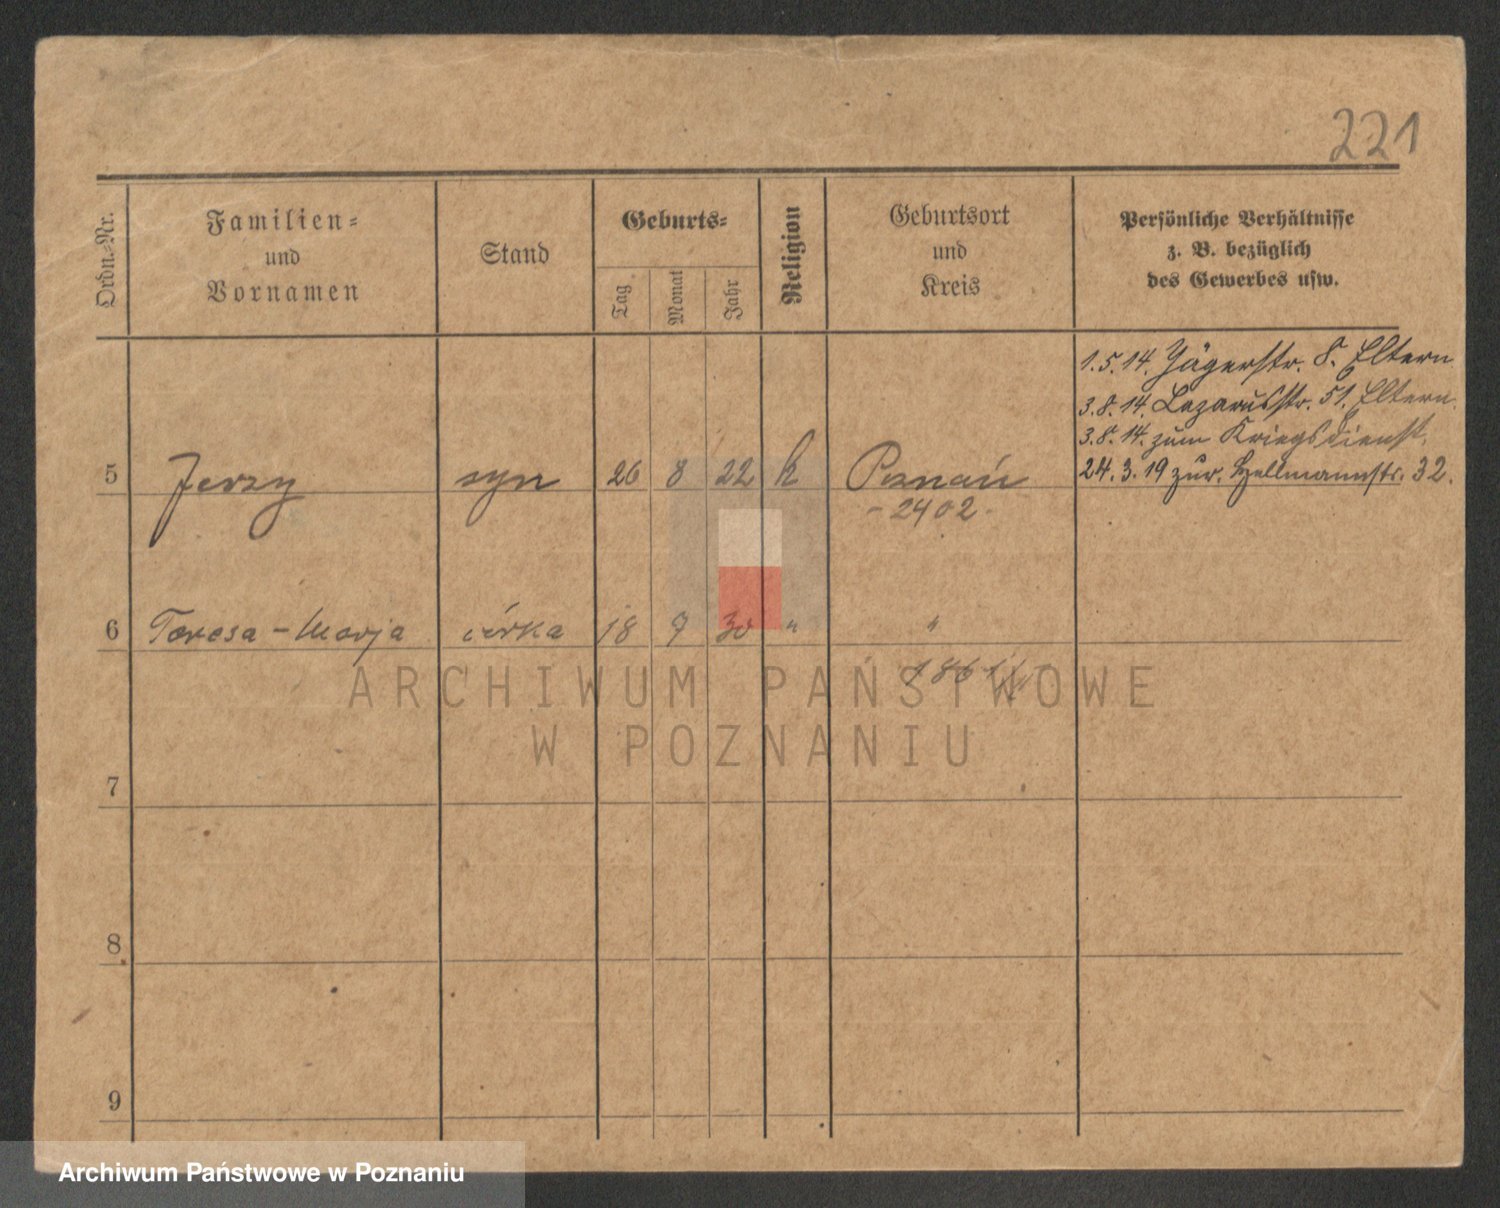 221
Ordn.-Nr.
Familien-
und
Vornamen
Stand
Geburts-
Tag
Monat
Jahr
Religion
Geburtsort
und
Kreis
Persönliche Verhältnisse
z. B. bezüglich
des Gewerbes usw.
1.5.14. Jägerstr. 8. Eltern
3.8.14. Lazarusstr. 51. Eltern.
3.8.14. zum Kriegsdienst.
24.3.19 zur. Hellmannstr. 32.
5 Jerzy syn 26 8 22 k Poznań
- 2402 -
6 Teresa - Marja córka 18 9 30 " "
1861
7
8
9
ARCHIWUM PAŃSTWOWE
W POZNANIU
Archiwum Państwowe w Poznaniu